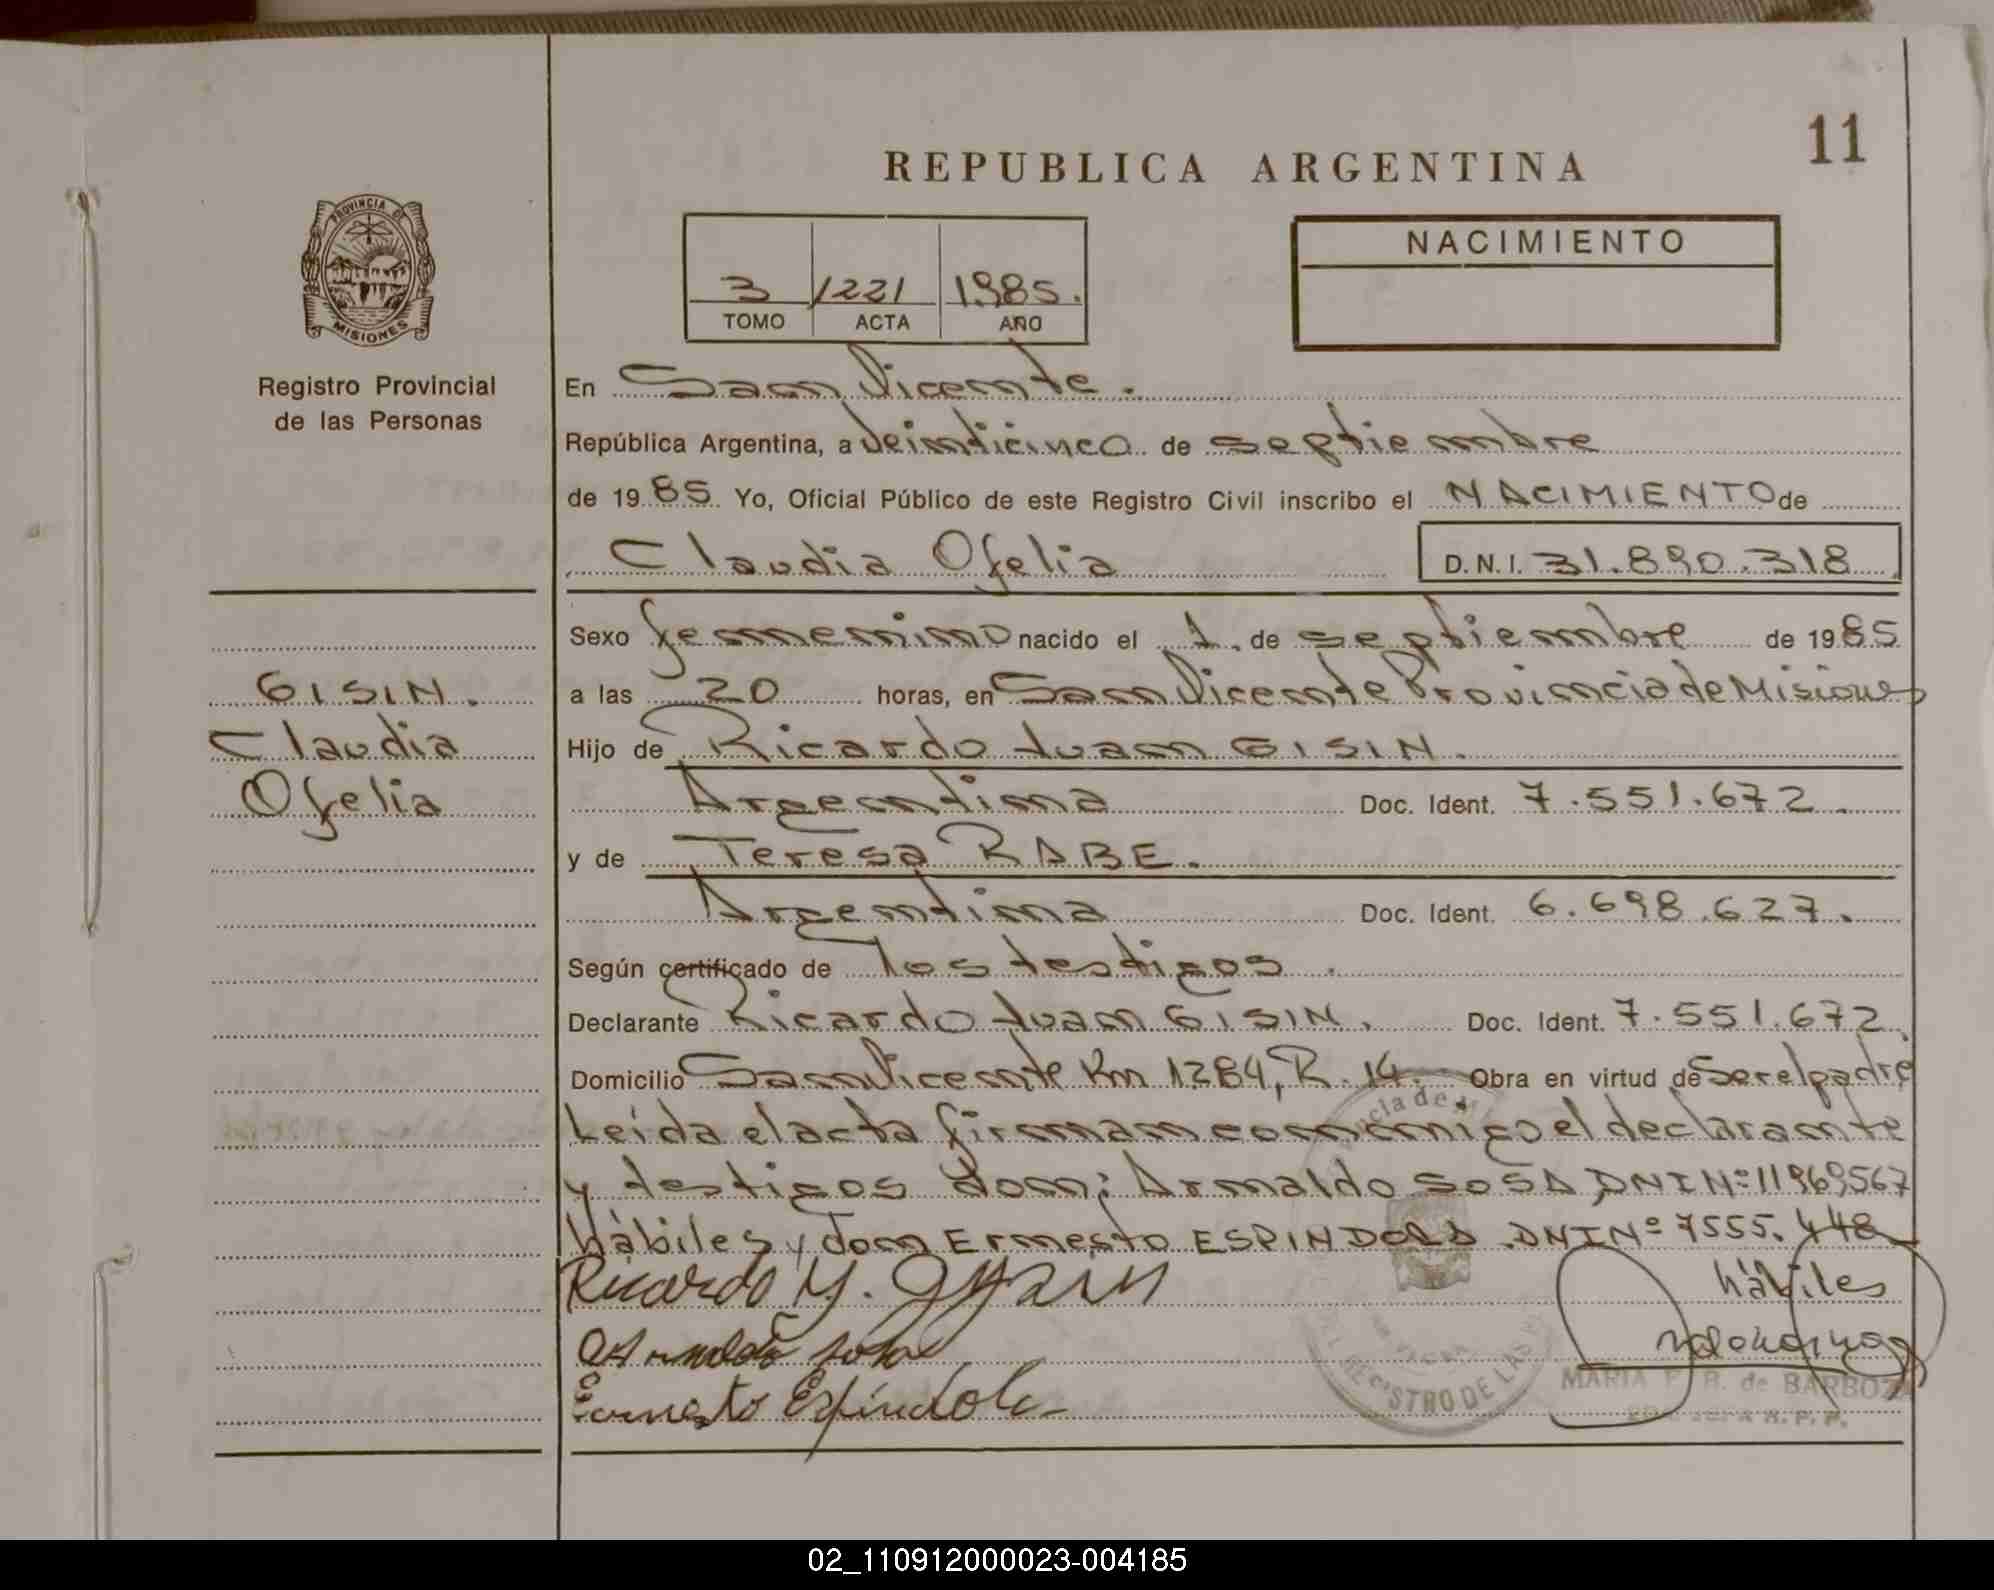 11
REPUBLICA ARGENTINA
PROVINCIA DE
MISIONES
Registro Provincial
de las Personas
NACIMIENTO
3 1221 1985.
TOMO ACTA AÑO
En San Vicente.
República Argentina, a Veinticinco de septiembre
de 19 85 Yo, Oficial Público de este Registro Civil inscribo el NACIMIENTO de
Claudia Ofelia D.N.I. 31.890.318
Sexo femenino nacido el 1. de septiembre de 19 85
GISIN.
Claudia
Ofelia
a las 20 horas, en San Vicente Provincia de Misiones
Hijo de Ricardo Juan GISIN.
Argentina Doc. Ident. 7.551.672.
y de Teresa RABE.
Argentina Doc. Ident. 6.698.627.
Según certificado de los testigos.
Declarante Ricardo Juan GISIN. Doc. Ident. 7.551.672
Domicilio San Vicente Km 1284, R. 14. Obra en virtud de Ser el padre
Leída el acta firman conmigo el declarante
y testigos don: Arnaldo SOSA, DNI Nº 11969567
hábiles y don Ernesto ESPINDOLA DNI Nº 7555.448
hábiles
Ricardo
Arnaldo Sosa
Ernesto Espíndola
MARIA E. B. de BARBOZA
R. P. P.
REGISTRO DE LAS
02_110912000023-004185